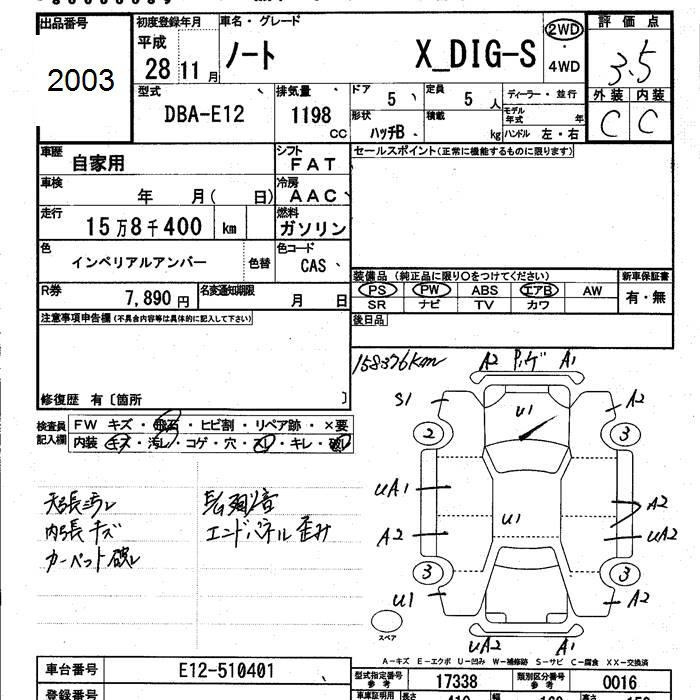 出品番号
2003
初度登録年月
平成
28 11月
車名・グレード
ノート X_DIG-S
2WD
・
4WD
評価点
3.5
外装 内装
C C
型式
DBA-E12
排気量
1198
CC
ドア
5
定員
5 人
ディーラー・並行
形状
ハッチB
積載
kg
モデル年式 年
ハンドル 左・右
車歴
自家用
シフト
FAT
セールスポイント(正常に機能するものに限ります)
車検
年 月( 日)
冷房
AAC
走行
15万8千400 km
燃料
ガソリン
色
インペリアルアンバー
色替
色コード
CAS
装備品(純正品に限り○をつけてください)
新車保証書
PS PW ABS エアB AW
有・無
SR ナビ TV カワ
R券
7,890円
名変通知期限
月 日
後日品
注意事項申告欄(不具合内容等は具体的に記入して下さい)
修復歴 有〔箇所 〕
158376km
A2 A1
S1 U1 A2
2 3
UA1 U1 A2
A2 UA2
3 3
U1 A2
UA2 A1
スペア
検査員記入欄
FW キズ・飛石・ヒビ割・リペア跡・×要
内装 キズ・汚レ・コゲ・穴・スレ・キレ・破レ
内張キズ
カーペット破レ
エンドパネル歪み
A-キズ E-エクボ U-凹み W-補修跡 S-サビ C-腐食 XX-交換済
車台番号
E12-510401
型式指定番号
参考
17338
類別区分番号
参考
0016
登録番号
車車証明用
長さ